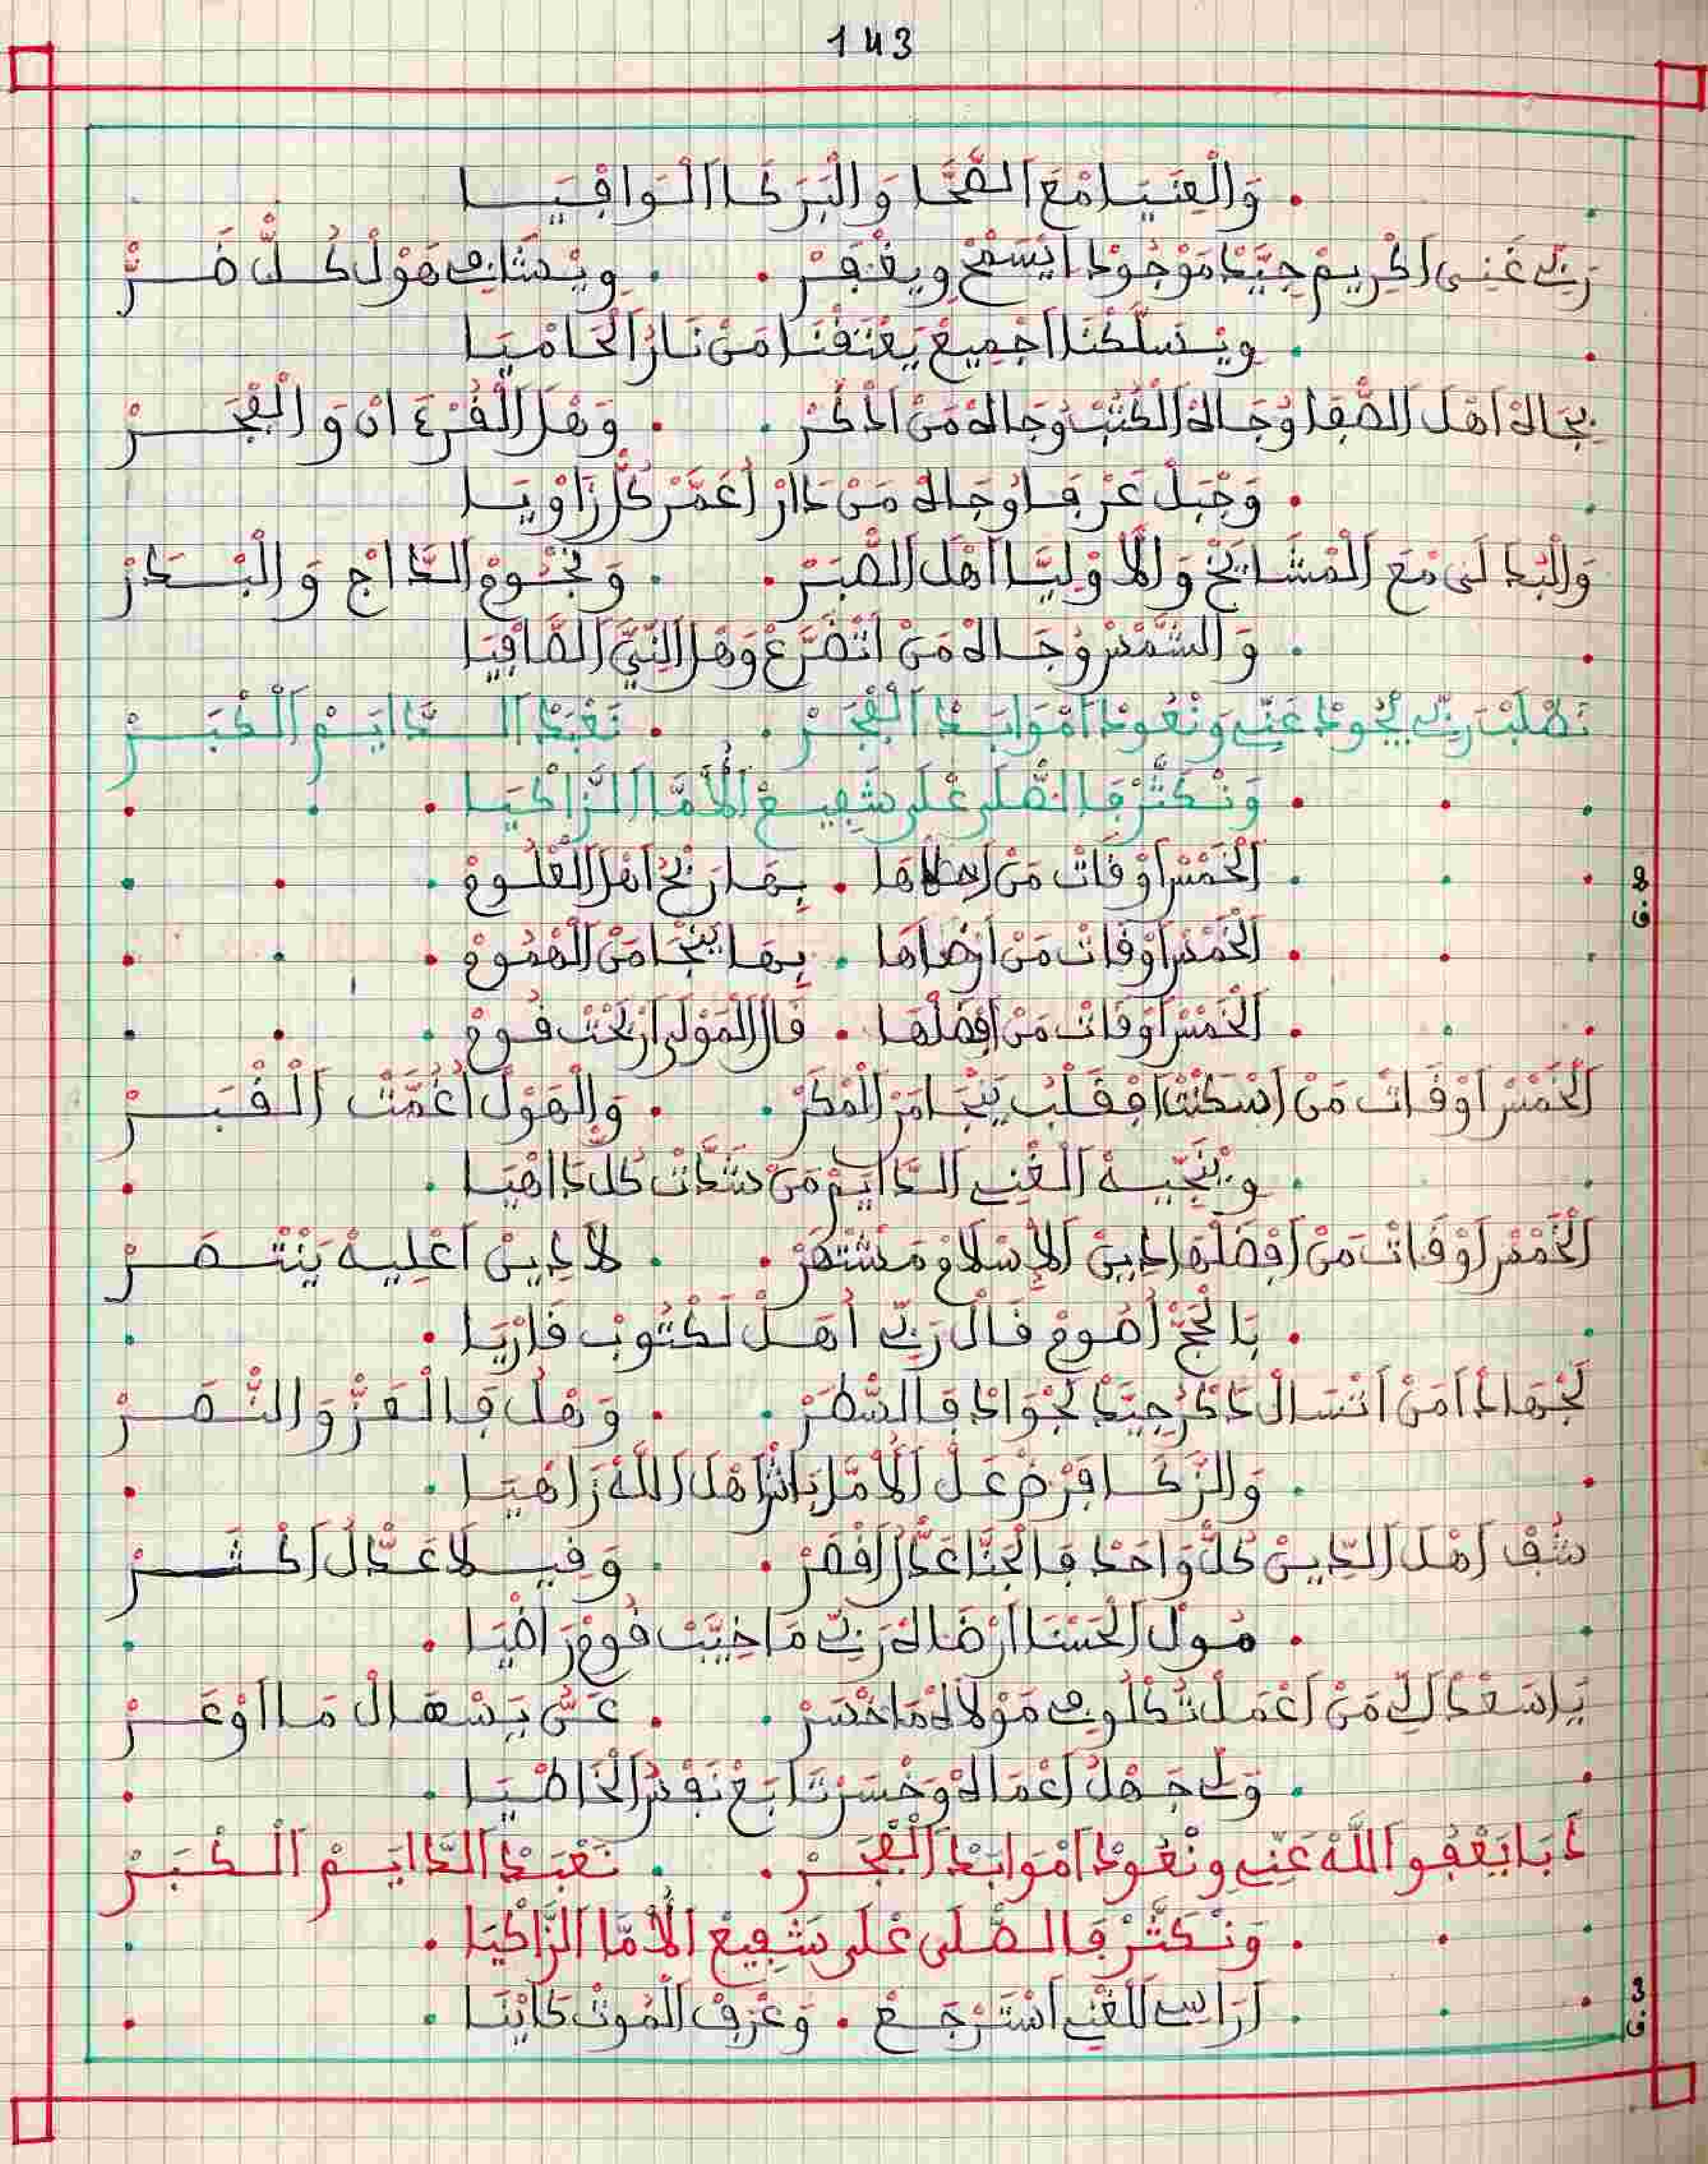 143
وَالْعِنَيَا مْعَ الصَّحَّا وَالْبَرَكَا الْوَافِيَا
رَبِّي غَنِي اكْرِيمْ جِيَّدْ مَوْجُودْ ايَسْمَحْ ويغْفَرْ . . ويْـ هَوْلْ كُلّْ ضَرّْ
ويْسَلَّكْنَا اجْمِيعْ يَعْتَقْنَا مَنْ نَارْ الْحَامْيَا
بِجَاهْ اهْلَ الصَّفَا وُجَاهْ الْكُتْبْ وُجَاهْ مَنْ اذْكَرْ . . وَهْلَ الْقُرْءَانْ وَالْفْجَرْ
وَجْبَلْ عَرْفَا وُجَاهْ مَنْ دَارْ اعَمَّرْ كُلّْ زَاوْيَا
وَالْبْدَالَى مْعَ الْمْشَايَخْ وَالَاوْلِيَّا اهْلَ الصّْبَرْ . . وَنْجُومْ الدَّاجْ وَالْبْدَرْ
وَالشَّمْسْ وُجَاهْ مَنْ اتْضَرَّعْ وَهْلَ النِّيَّ الصَّافِيَا
نَطْلَبْ رَبِّي يْجُودْ عَنِّي وَنْعُودْ امْوَابَدْ الْفْجَرْ . . نَعْبَدْ الدَّايَمْ الْكْبَرْ
وَنْكَثَّرْ فَالصّْلَى عْلَى شَفِيعْ الُامَّا الزَّاكْيَا
الْخَمْسْ اوْقَاتْ مَنْ اعْطَاهَا . بِهَا رَبْحْ اهْلَ الْعْلُومْ
2 ف
الْخَمْسْ اوْقَاتْ مَنْ ارْضَاهَا . بِهَا يَنْجَا مَنْ الْهْمُومْ
الْخَمْسْ اوْقَاتْ مَنْ افْضَلْهَا . قَالْ الْمَوْلَى ارْبَحْتْ قُومْ
الْخَمْسْ اوْقَاتْ مَنْ اسْكَنْتْ افْقَلْبُ يَنْجَا مَنْ الْمْكَرْ . . وَالْهَوْلْ اغُمَّتْ الْقْبَرْ
وَيْنَجِّيهْ الْغْنِي الدَّايَمْ مَنْ شَدَّاتْ كُلّْ دَاهْيَا
الْخَمْسْ اوْقَاتْ مَنْ افْضَلْهَا ادِينْ الْإِسْلَامْ مَشْتْهَرْ . . لَا دِينْ اعْلِيهْ يَنْتْصَرْ
بَالْحَجّْ اصُومْ قَالْ رَبِّي اهَلْ لَكْتُوبْ قَارْيَا
لَجْهَادْ امَنْ اتْسَالْ دَكَّرْ جِيَّدْ لَجْوَادْ فَالسّْطَرْ . . وَهْلُ فَالْعَزّْ وَالنّْصَرْ
وَالزّْكَا فَرْضْ عَلْ الُامَّا بَاشْ اهْلَ اللَّهْ زَاهْيَا
شُفْ اهْلَ الدِّينْ كُلّْ وَاحَدْ فَالْجَنَّا عَدُّ الَقْصَرْ . . وَفِيـ لَاعَدُّلْ اكْثَرْ
مُولْ الْحَسْنَا ارْضَاهْ رَبِّي مَا خَيَّبْ قُومْ رَاضْيَا
يَا سَعْدْ الِّي مَنْ اعْمَلْ مَوْلَاهْ مَا خْسَرْ . . عَنُّ يَسْهَالْ مَا اوْعَرْ
وَلِّي جَهْلُ اعْمَاهْ وَخْسَرْ تَابَعْ نَفْسُ الْخَاطْيَا
دَابَا يَعْفُو اللَّهْ عَنِّي وَنْعُودْ امْوَابَدْ الْفْجَرْ . . نَعْبَدْ الدَّايَمْ الْكْبَرْ
وَنْكَثَّرْ فَالصّْلَى عْلَى شَفِيعْ الُامَّا الزَّاكْيَا
ارَاسِي لَلْغْنِي اسْتَرْجَعْ . وَعْرَفْ الْمُوتْ كَايْنَا
3 ف